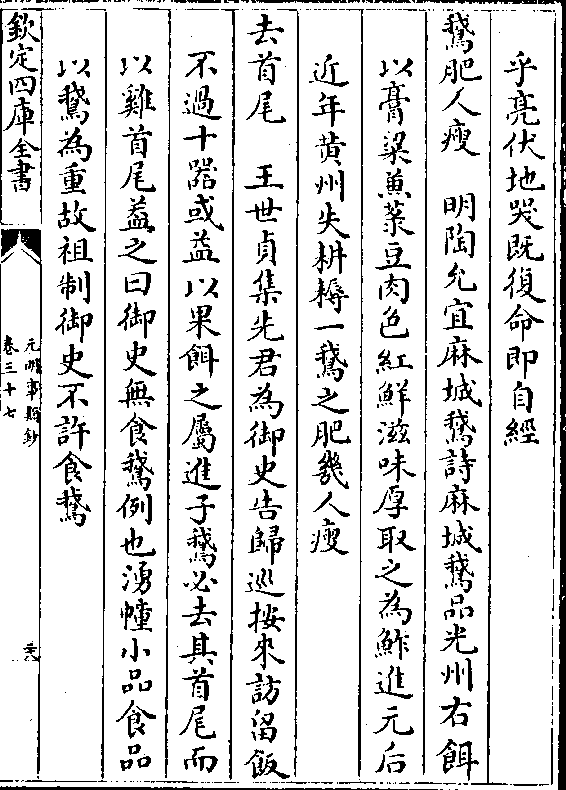 乎亮伏地哭既復命即自經
鵝肥人瘦　明陶允宜麻城鵝詩麻城鵝品光州右餌
以膏粱煎菉豆肉色紅鮮滋味厚取之為鮓進元后
近年黄州失耕耨一鵝之肥幾人瘦
去首尾　王世貞集先君為御史告歸巡按來訪留飯
不過十器或益以果餌之屬進子鵝必去其首尾而
以雞首尾葢之曰御史無食鵝例也湧幢小品食品
以鵝為重故祖制御史不許食鵝
欽定四庫全書
元明事類鈔
卷三十七